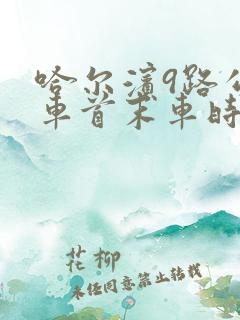 哈尔滨9路公
车首末车时
花柳
未经同意禁止转载